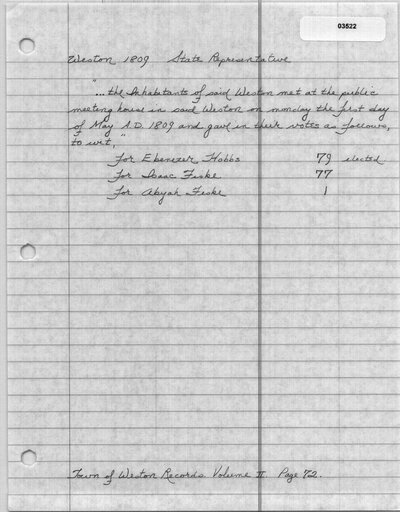 03522
Weston 1809 State Representative
"...the Inhabitants of said Weston met at the public
meeting house in said Weston on monday the first day
of May A.D. 1809 and gave in their votes as follows,
to wit,"
for Ebenezer Hobbs 79 elected
for Isaac Fiske 77
for Abijah Fiske 1
Town of Weston Records. Volume II. Page 72.